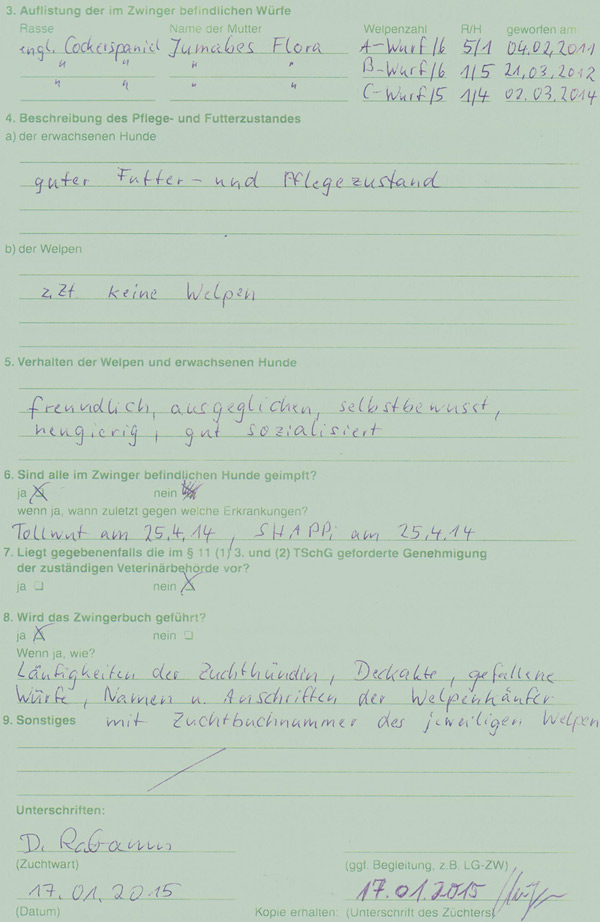 3. Auflistung der im Zwinger befindlichen Würfe
Rasse Name der Mutter Welpenzahl R/H geworfen am
engl. Cockerspaniel Jumabes Flora A-Wurf/6 5/1 04.02.2011
" " " " B-Wurf/6 1/5 21.03.2012
" " " " C-Wurf/5 1/4 02.03.2014
4. Beschreibung des Pflege- und Futterzustandes
a) der erwachsenen Hunde
guter Futter- und Pflegezustand
b) der Welpen
z.Zt. keine Welpen
5. Verhalten der Welpen und erwachsenen Hunde
freundlich, ausgeglichen, selbstbewusst,
neugierig, gut sozialisiert
6. Sind alle im Zwinger befindlichen Hunde geimpft?
ja nein
wenn ja, wann zuletzt gegen welche Erkrankungen?
Tollwut am 25.4.14, SHAPPi am 25.4.14
7. Liegt gegebenenfalls die im § 11 (1) 3. und (2) TSchG geforderte Genehmigung
der zuständigen Veterinärbehörde vor?
ja nein
8. Wird das Zwingerbuch geführt?
ja nein
Wenn ja, wie?
Läufigkeiten der Zuchthündin, Deckakte, gefallene
Würfe, Namen u. Anschriften der Welpenkäufer
9. Sonstiges mit Zuchtbuchnummer des jeweiligen Welpen
Unterschriften:
D.
(Zuchtwart) (ggf. Begleitung, z.B. LG-ZW)
17.01.2015 17.01.2015
(Datum) Kopie erhalten: (Unterschrift des Züchters)